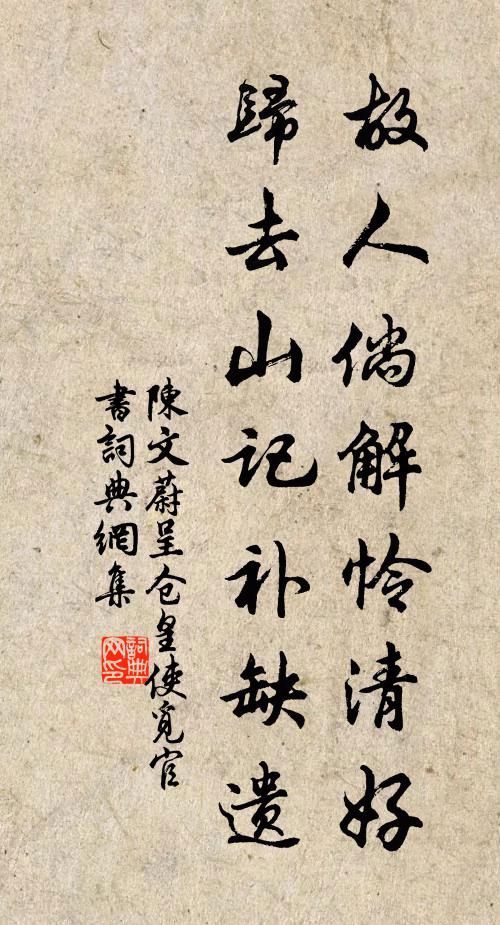 故人倘解怜清好
歸去山记补缺遗
陳文蔚呈仓皇使觅官
書詞典網集
詞典网印